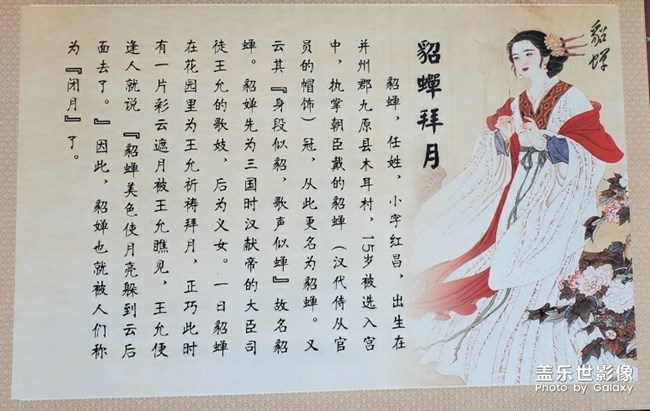 貂蝉
貂蝉拜月
貂蝉，任姓，小字红昌，出生在
并州郡九原县木耳村，15岁被选入宫
中，执掌朝臣戴的貂蝉（汉代侍从官
员的帽饰）冠，从此更名为貂蝉。又
云其『身段似貂，歌声似蝉』故名貂
蝉。貂婵先为三国时汉献帝的大臣司
徒王允的歌妓，后为义女。一日貂蝉
在花园里为王允祈祷拜月，正巧此时
有一片彩云遮月被王允瞧见，王允便
逢人就说『貂蝉美色使月亮躲到云后
面去了。』因此，貂婵也就被人们称
为『闭月』了。
盖乐世影像
Photo by Galaxy